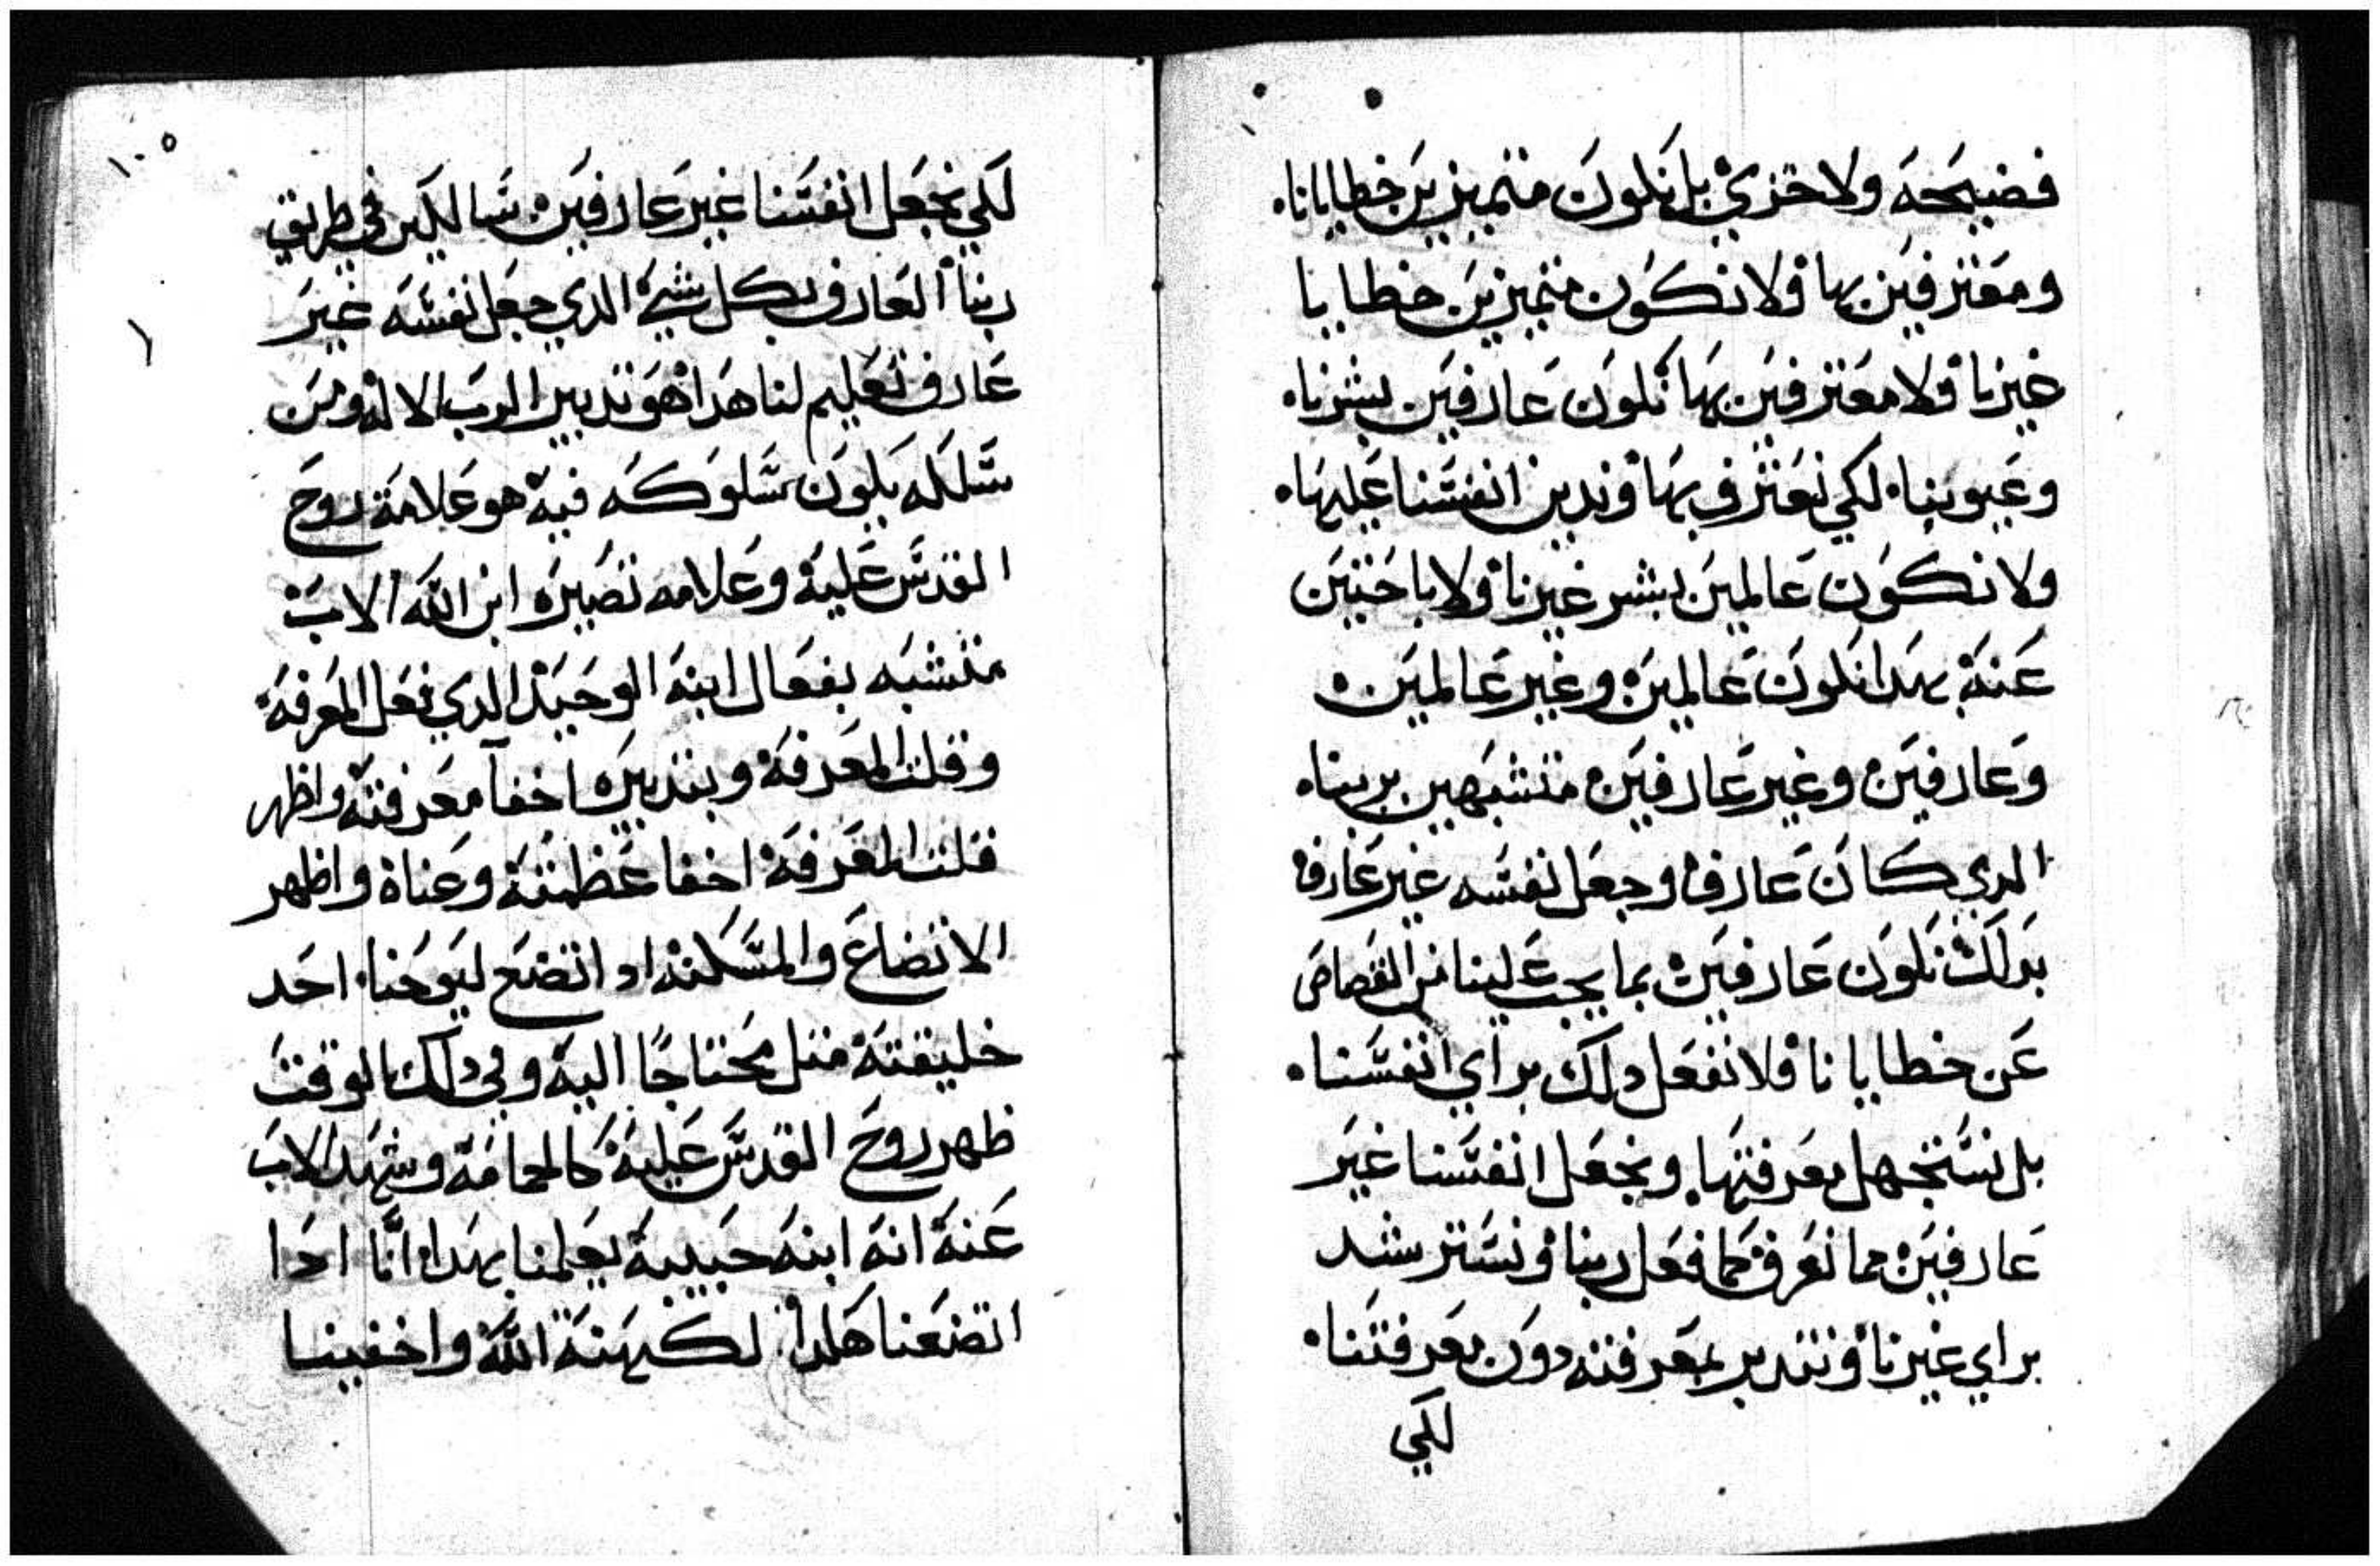 فضيحه ولا خزي بل نكون متميزين خطايانا.
ومعترفين بها ولا نكون متميزين خطايا
غيرنا ولا معترفين بها نكون عارفين بشرنا.
وعيوبنا. لكي نعترف بها وندين انفسنا عليها.
ولا نكون عالمين بشر غيرنا ولا باحتين
عنه بهدا نكون عالمين وغير عالمين.
وعارفين وغير عارفين متشبهين بربنا.
الدي كان عارف وجعل نفسه غير عارف
بدلك نكون عارفين بما يجب علينا من القصاص
عن خطايانا فلا نفعل دلك براي انفسنا.
بل نستجهل معرفتها. ونجعل انفسنا غير
عارفين مما نعرف كما فعل ربنا ونسترشد
براي غيرنا ونتدبر بمعرفته دون معرفتنا.
لكي
١٠٥
لكي نجعل انفسنا غير عارفين سالكين في طريق
ربنا العارف بكل شي الدي جعل نفسه غير
عارف تعليم لنا هدا هو تدبير الرب الاله ومن
سلكه يكون سلوكه فيه هو علامة روح
القدس عليه وعلامه تصيره ابن الله الاب
متشبه بفعال ابنه الوحيد الدي فعل المعرفه
وقلت المعرفه وبتدبيره اخفا معرفته واظهر
قلت المعرفه اخفا عظمته وعناه واظهر
الاتضاع والمسكنه اد اتضع ليوحنا. احد
خليقته متل محتاجًا اليه وفي دلك الوقت
ظهر روح القدس عليه كالحمامة وشهد الاب
عنه انه ابنه حبيبه يعلمنا بهدا اننا ادا
اتضعنا هكدا. لكهنة الله واخفينا